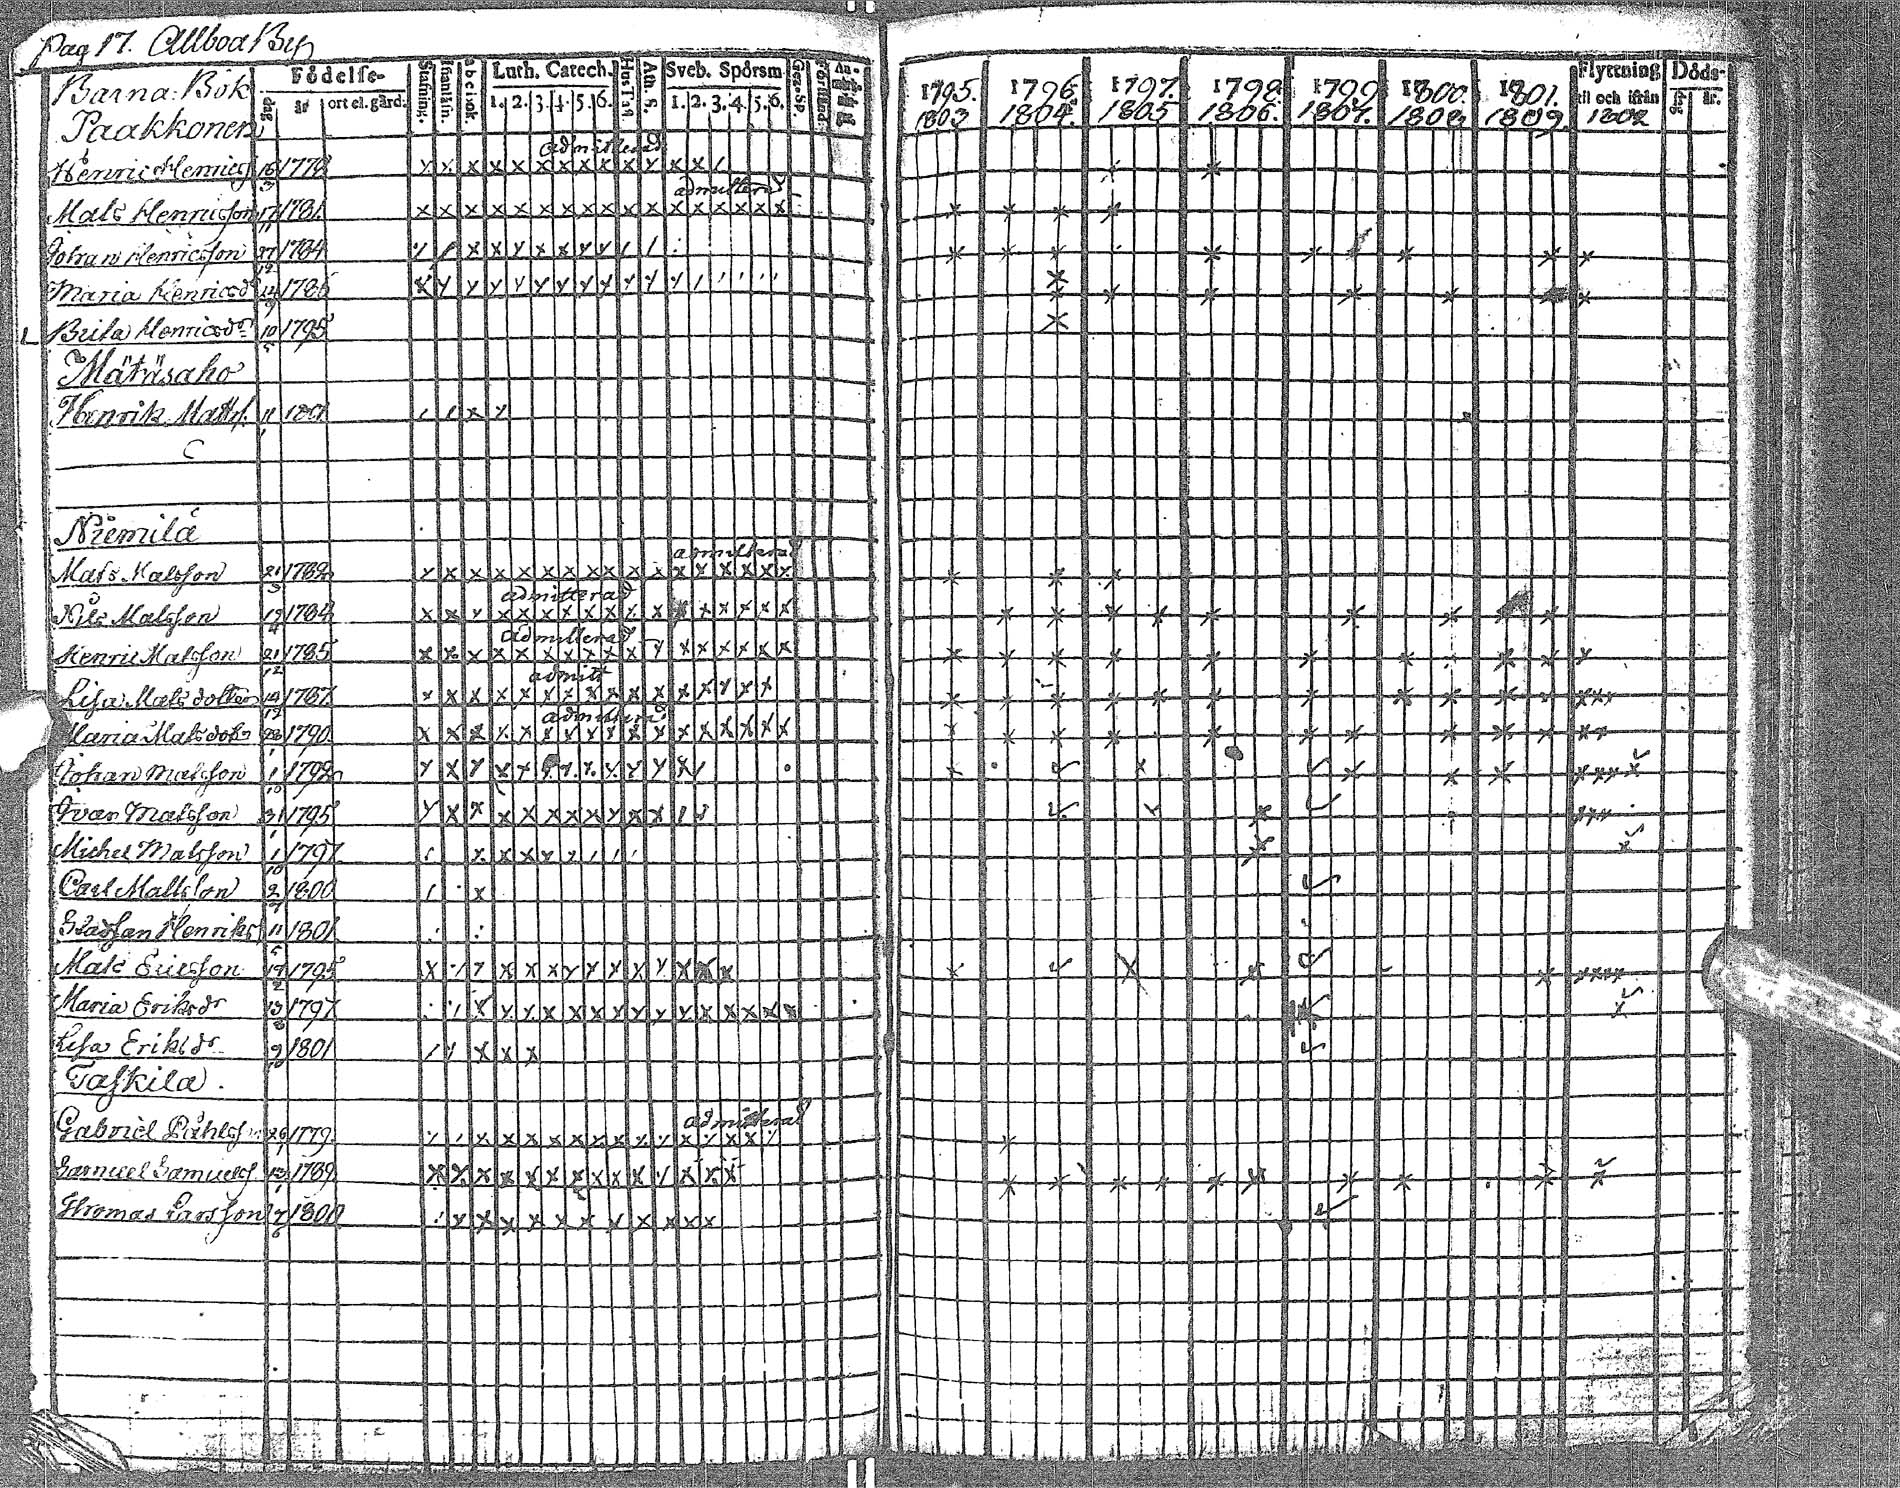 Pag 17. Allboa By
Barna-Bok
Födelse-
dag
år
ort el. gård.
Stafning.
Luth. Catech.
1. 2. 3. 4. 5. 6.
Ath. S.
Sveb. Spörsm.
1. 2. 3. 4. 5. 6.
1795. 1796. 1797. 1798. 1799 1800. 1801.
1803 1804. 1805 1806. 1807. 1808. 1809.
Flyttning
til och ifrån
1802
Döds-
år.
Paakkonen
admitterad
Henric Henrics 16/3 1778
admitterad
Mats Henricsson 17/11 1781
Johan Henricsson 27/12 1784
Maria Henricsdr 14/9 1786
Brita Henricsdr 10/5 1795
Mätäsaho
Henrik Matts. 11/1 1801
Niemilä
admitterad
Mats Matsson 21/3 1782
admitterad
Nils Matsson 19/4 1784
admitterad
Henric Matsson 21/12 1785
admitt
Lisa Matsdotter 14/12 1787
admitterad
Maria Matsdotr 28/1 1790
Johan Matsson 1/10 1792
Ivar Matsson 31/1 1795
Michel Matsson 1/10 1797
Carl Mattsson 2 1800
Staffan Henriks 11/5 1801
Mats Ericsson 19/2 1795
Maria Eriksdr 13/8 1797
Lisa Eriksdr 9/10 1801
Taskila.
admitterad
Gabriel Påhls 26/1 1779
Samuel Samuels 13/1 1789
Thomas Larsson 7/6 1800